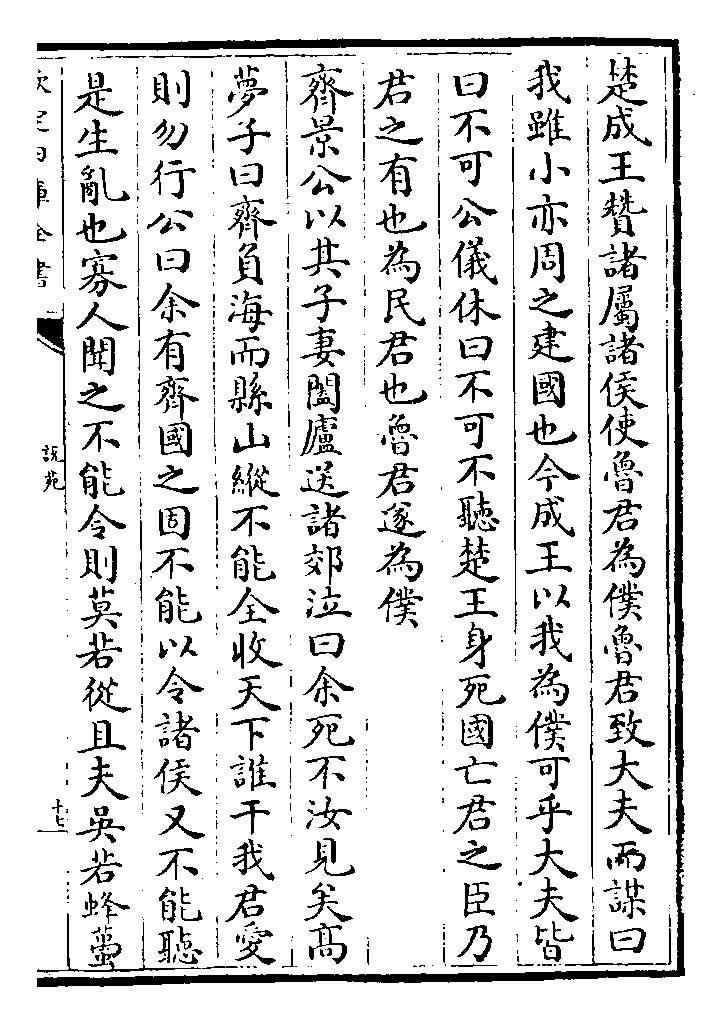 楚成王贊諸屬諸侯使魯君為僕魯君致大夫而謀曰
我雖小亦周之建國也今成王以我為僕可乎大夫皆
曰不可公儀休曰不可不聽楚王身死國亡君之臣乃
君之有也為民君也魯君遂為僕
齊景公以其子妻闔廬送諸郊泣曰余死不汝見矣高
夢子曰齊負海而縣山縱不能全收天下誰干我君愛
則勿行公曰余有齊國之固不能以令諸侯又不能聽
是生亂也寡人聞之不能令則莫若從且夫吳若蜂蠆
欽定四庫全書
說苑
十七